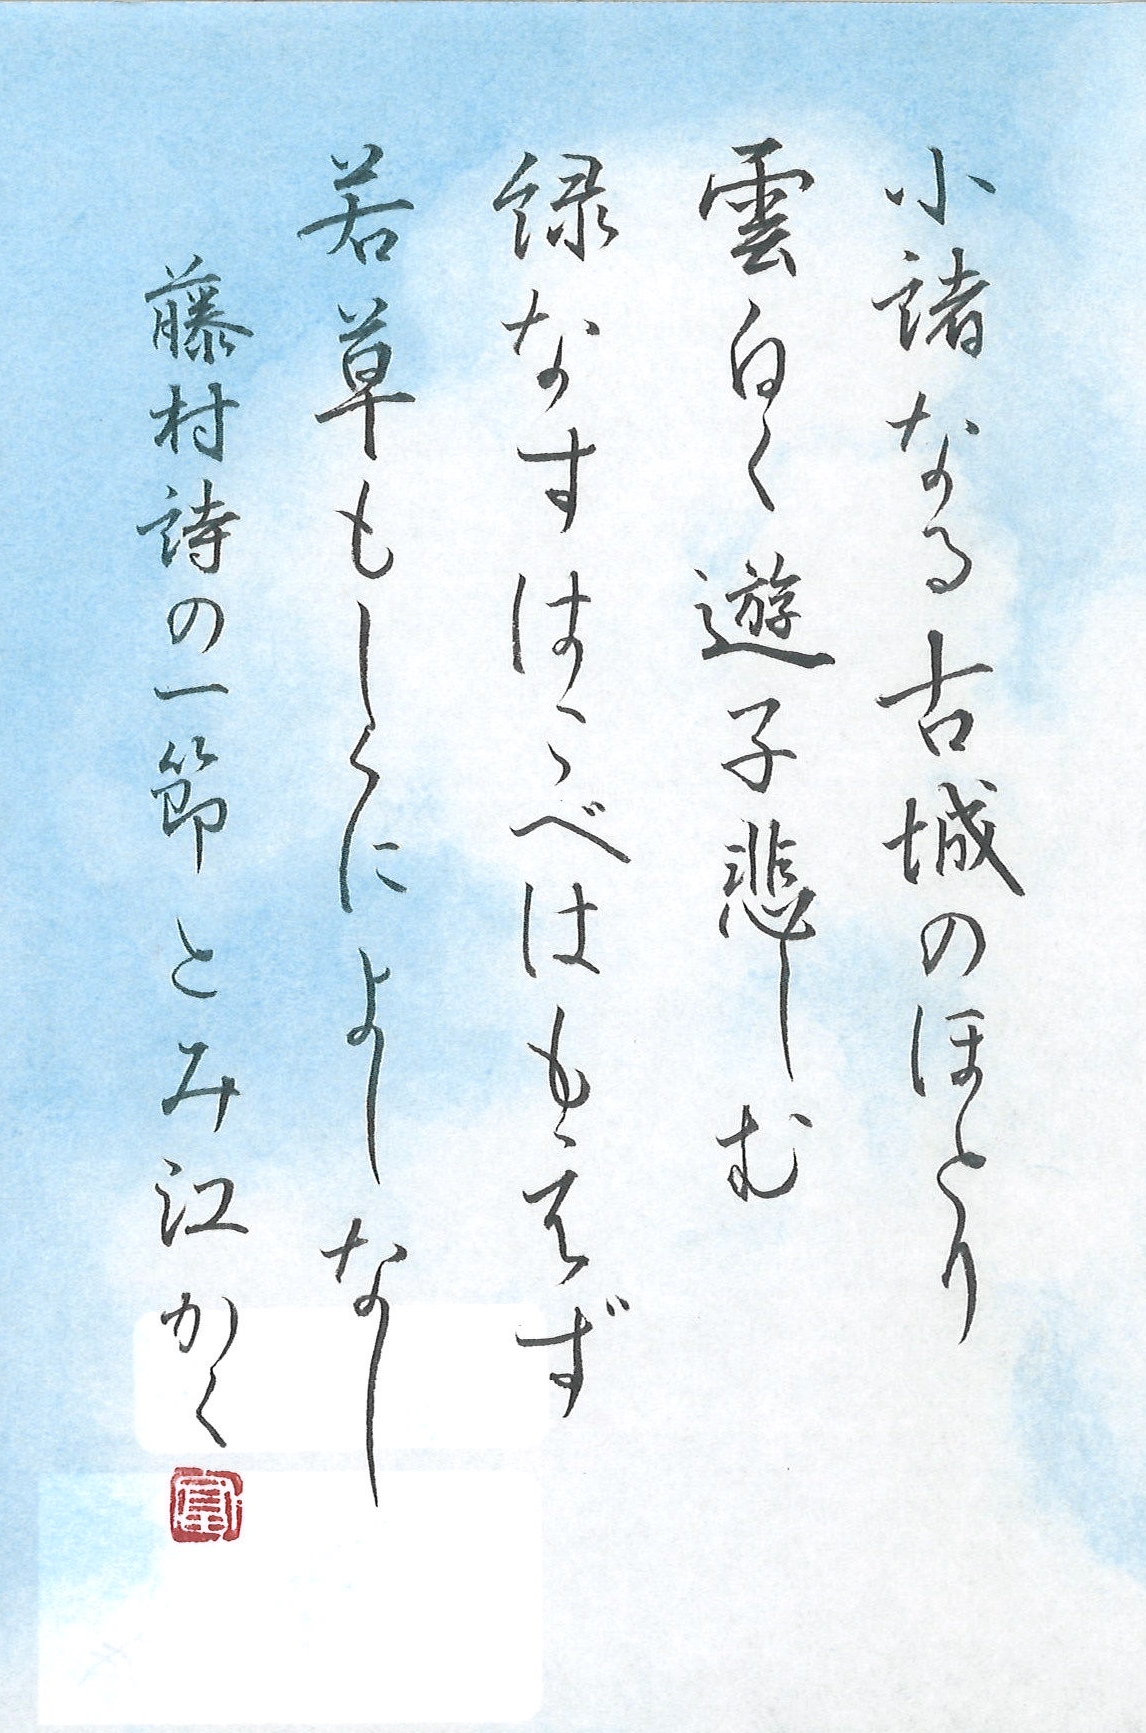 小諸なる古城のほとり
雲白く遊子悲しむ
緑なすはこべはもえず
若草もしくによしなし
藤村詩の一節 とみ江かく
富